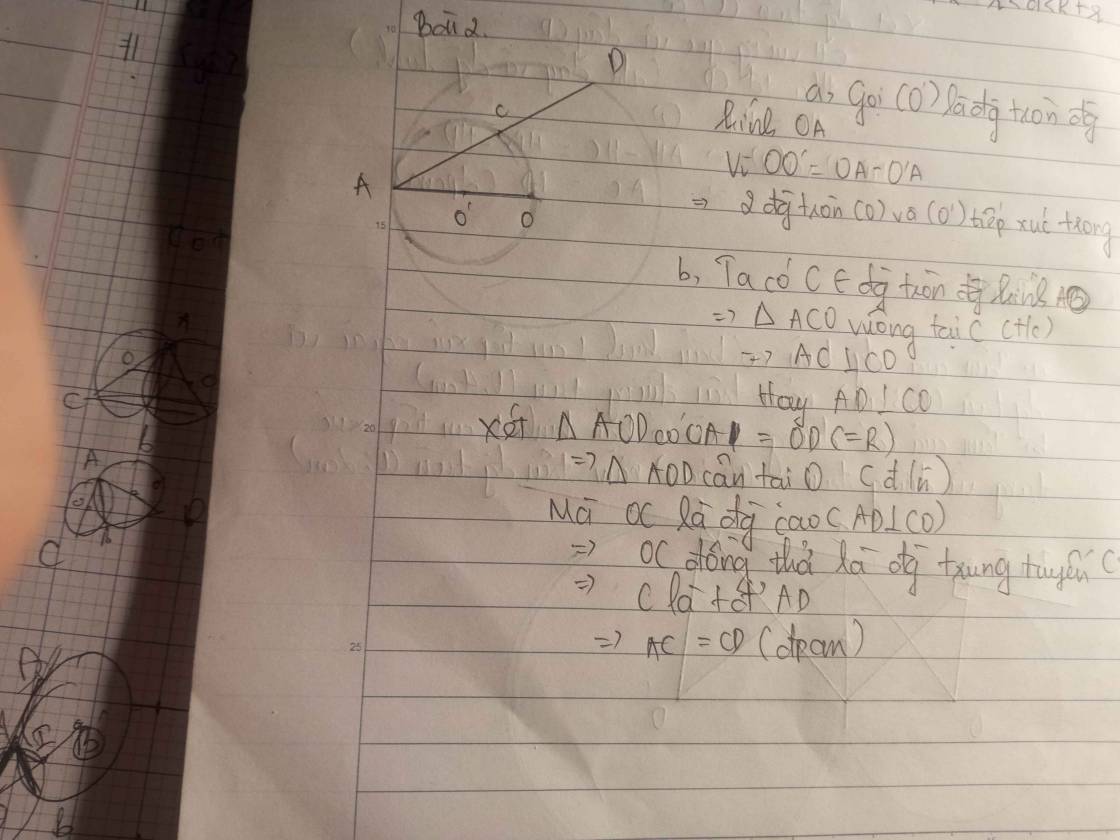 Bài 2.
D
C
A
O'
O
a, Gọi (O') là đg tròn đg
kính OA
Vì OO' = OA - O'A
=> 2 đg tròn (O) và (O') tiếp xúc trong
b, Ta có C ∈ đg tròn đg kính AO
=> Δ ACO vuông tại C (t/c)
=> AC ⊥ CO
Hay AD ⊥ CO
Xét Δ AOD có OA = OD (=R)
=> Δ AOD cân tại O (đ/n)
Mà OC là đg cao (AD ⊥ CO)
=> OC đồng thời là đg trung tuyến
=> C là tđ' AD
=> AC = CD (đpcm)
10
15
20
25
A
O
C
b
A
C
b